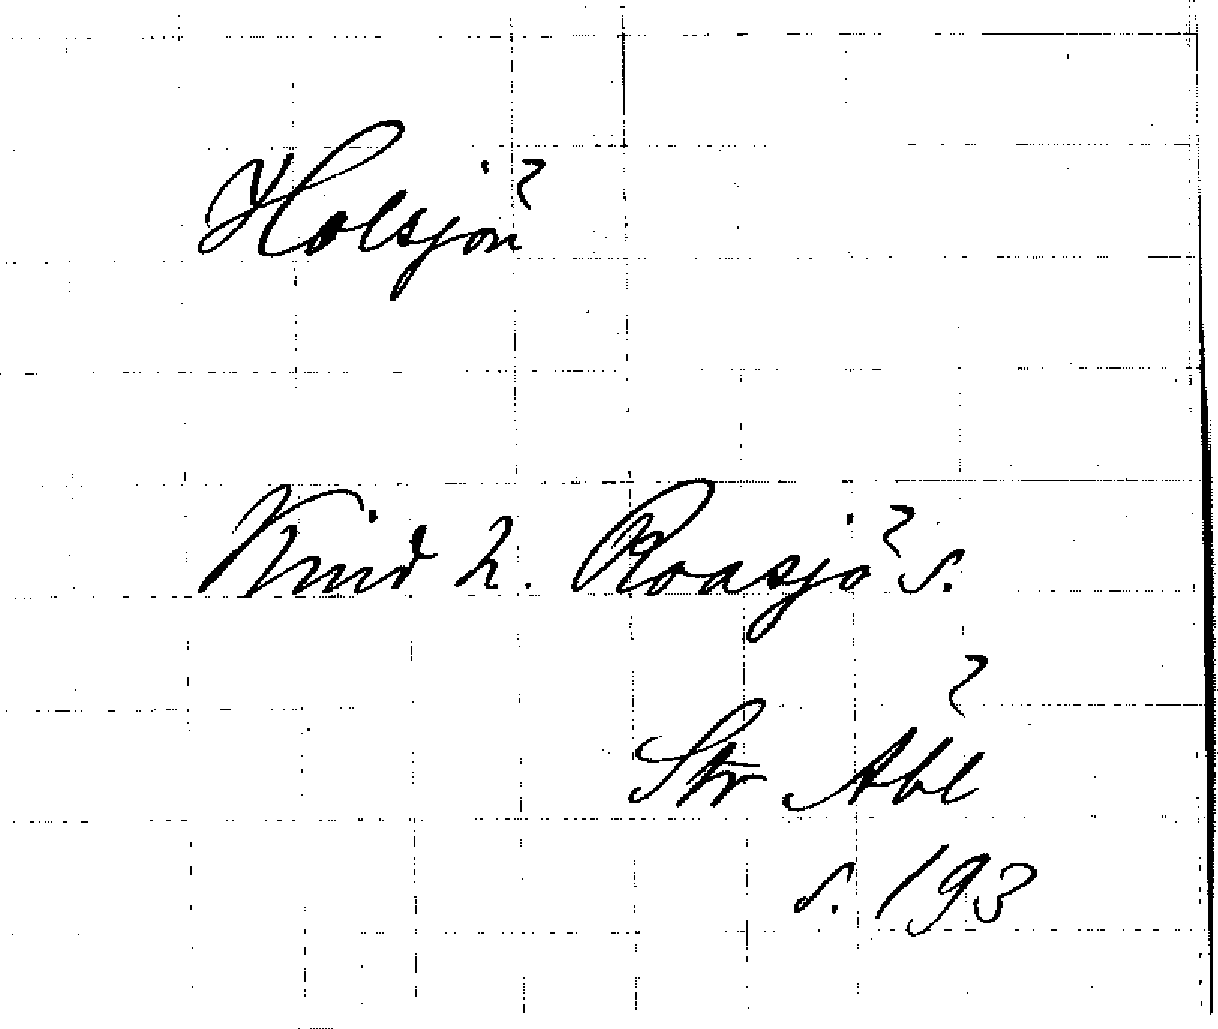 Holsjön
Kind h. Roasjö s.
Str Abl
s. 193